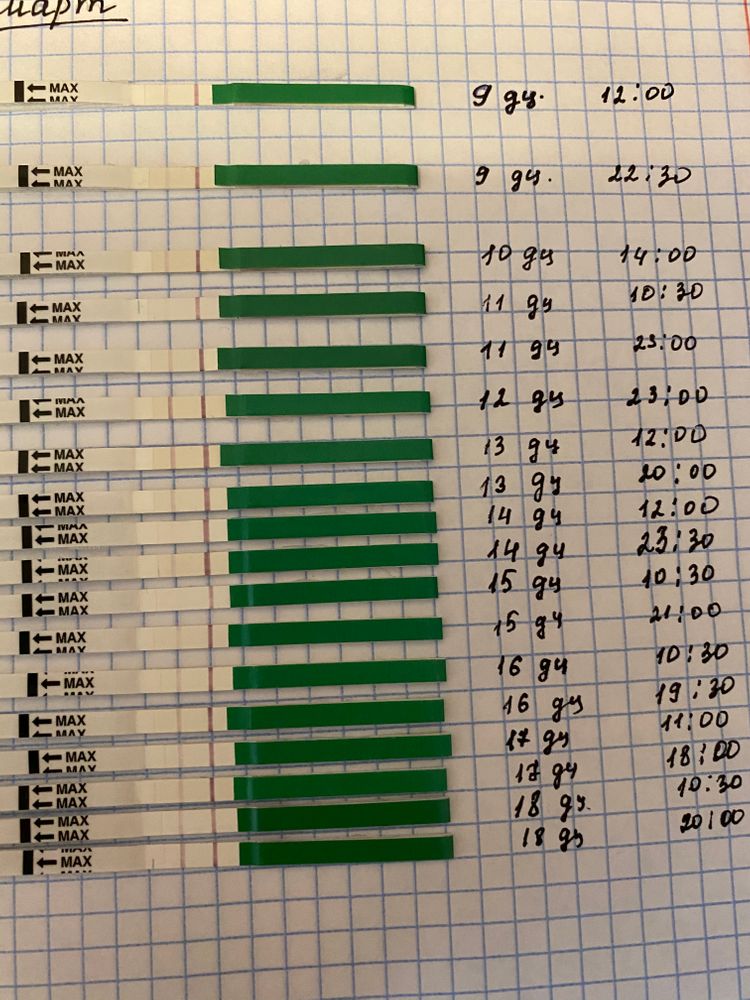 март
MAX MAX 9 дц. 12:00
MAX MAX 9 дц. 22:30
MAX MAX 10 дц 14:00
MAX MAX 11 дц 10:30
MAX MAX 11 дц 23:00
MAX MAX 12 дц 23:00
MAX MAX 13 дц 12:00
MAX MAX 13 дц 20:00
MAX MAX 14 дц 12:00
MAX MAX 14 дц 23:30
MAX MAX 15 дц 10:30
MAX MAX 15 дц 21:00
MAX MAX 16 дц 10:30
MAX MAX 16 дц 19:30
MAX MAX 17 дц 11:00
MAX MAX 17 дц 18:00
MAX MAX 18 дц. 10:30
MAX MAX 18 дц 20:00